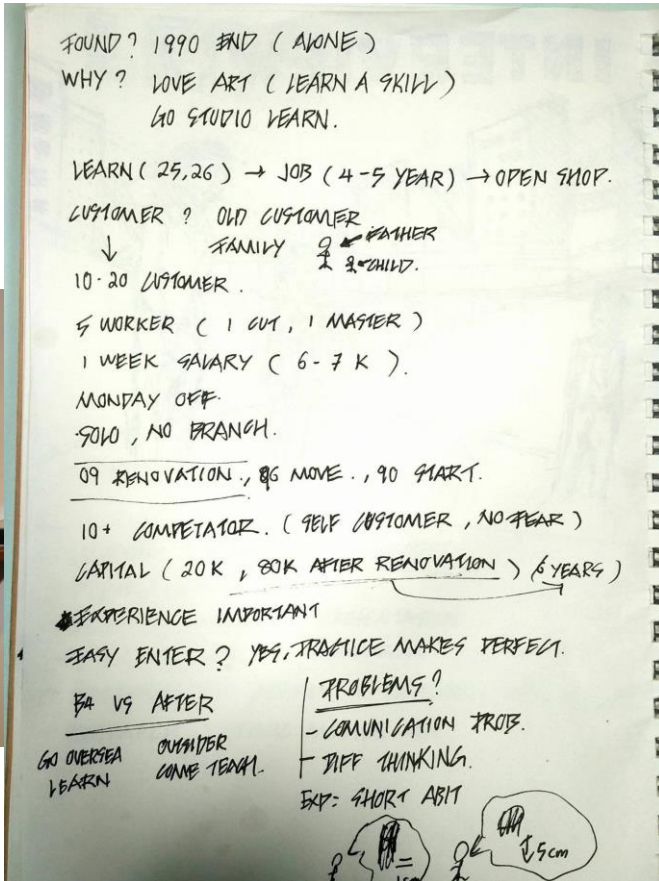 FOUND? 1990 END (ALONE)
WHY? LOVE ART (LEARN A SKILL)
GO STUDIO LEARN.
LEARN (25,26) → JOB (4-5 YEAR) → OPEN SHOP.
CUSTOMER? OLD CUSTOMER
↓ FAMILY FATHER
CHILD.
10-20 CUSTOMER.
5 WORKER (1 CUT, 1 MASTER)
1 WEEK SALARY (6-7 K).
MONDAY OFF.
SOLO, NO BRANCH.
09 RENOVATION., 96 MOVE., 90 START.
10+ COMPETATOR. (SELF CUSTOMER, NO FEAR)
CAPITAL (20K, 80K AFTER RENOVATION) (6 YEARS)
EXPERIENCE IMPORTANT
EASY ENTER? YES, PRACTICE MAKES PERFECT.
B4 VS AFTER
GO OVERSEA LEARN
OUTSIDER COME TEACH.
PROBLEMS?
- COMUNICATION PROB.
- DIFF THINKING.
EXP: SHORT ABIT
5cm